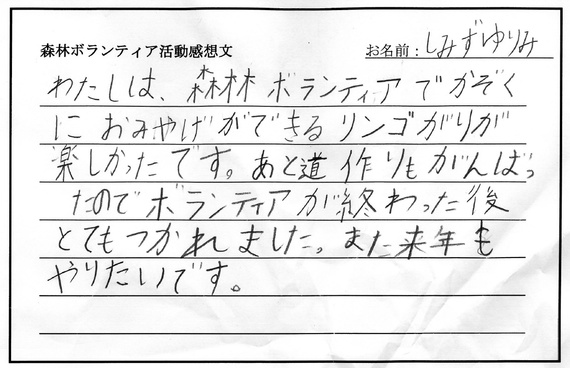 森林ボランティア活動感想文
お名前：しみずゆりみ
わたしは、森林ボランティアでかぞく
におみやげができるリンゴがりが
楽しかったです。あと道作りもがんばっ
たのでボランティアが終わった後
とてもつかれました。また来年も
やりたいです。